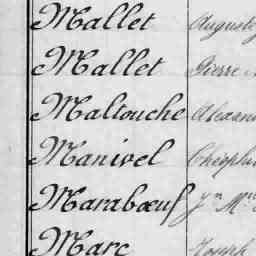 Mallet Auguste
Mallet Pierre
Maltouche Alexan
Manivel Théophi
Marabœuf Jn M
Marc Joseph